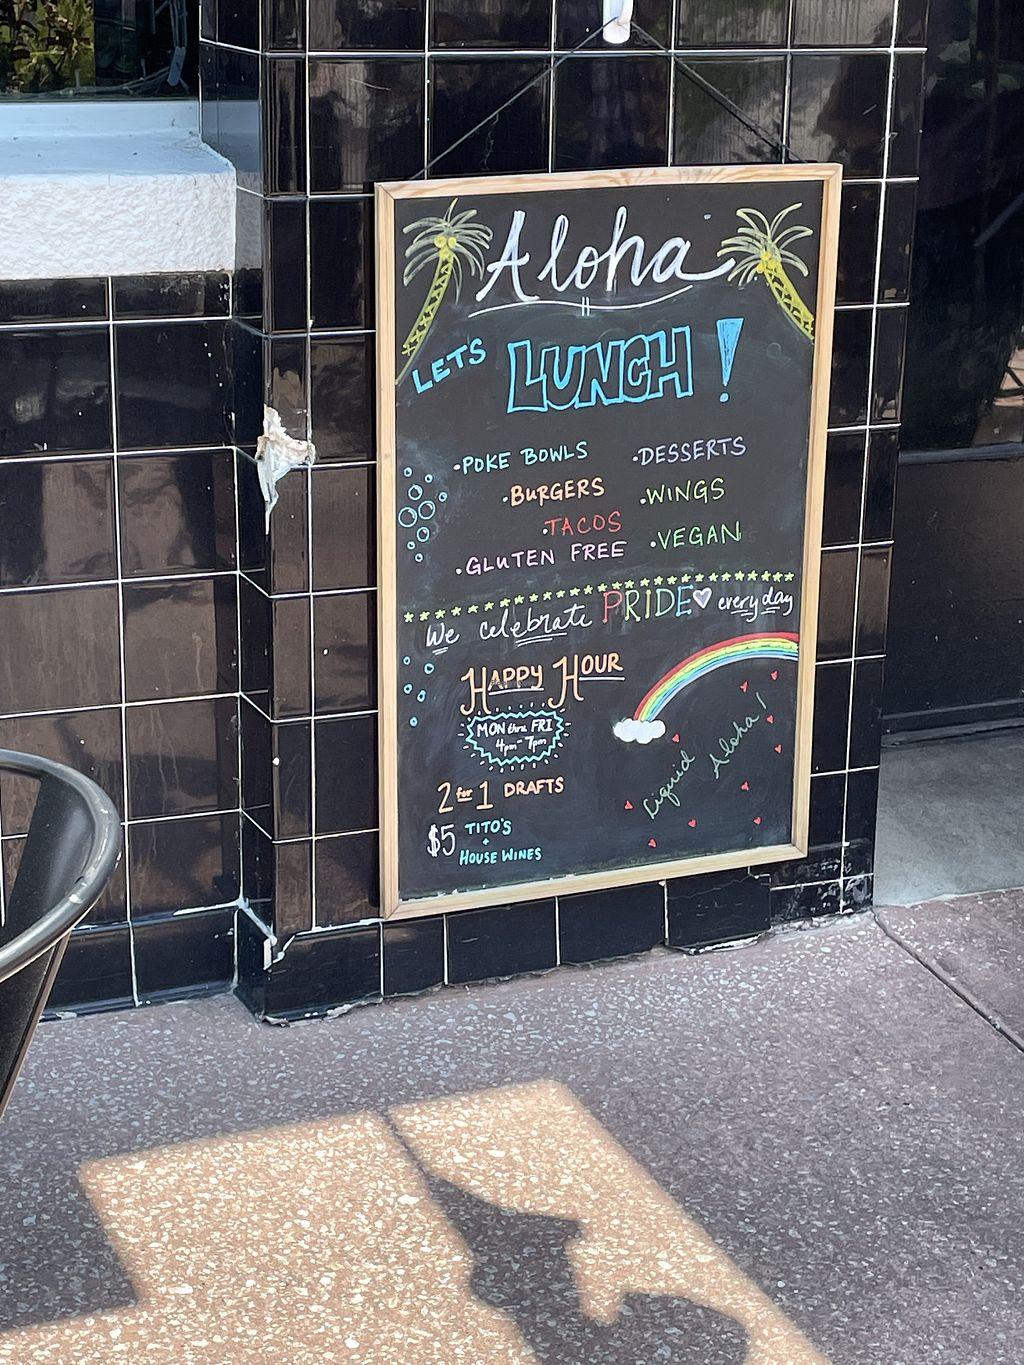 Aloha
LETS LUNCH!
•POKE BOWLS
•DESSERTS
•BURGERS
•WINGS
•TACOS
•VEGAN
•GLUTEN FREE
We celebrate PRIDE♡ everyday
HAPPY HOUR
MON thru FRI
4pm-7pm
2 for 1 DRAFTS
$5 TITO'S
+
HOUSE WINES
Liquid Aloha!